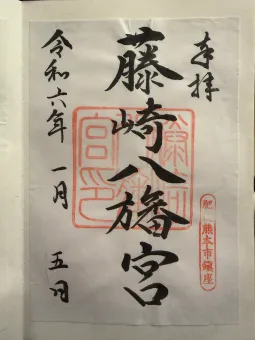 奉拝
肥後 熊本市鎮座
藤崎八旛宮
令和六年 一月 五日